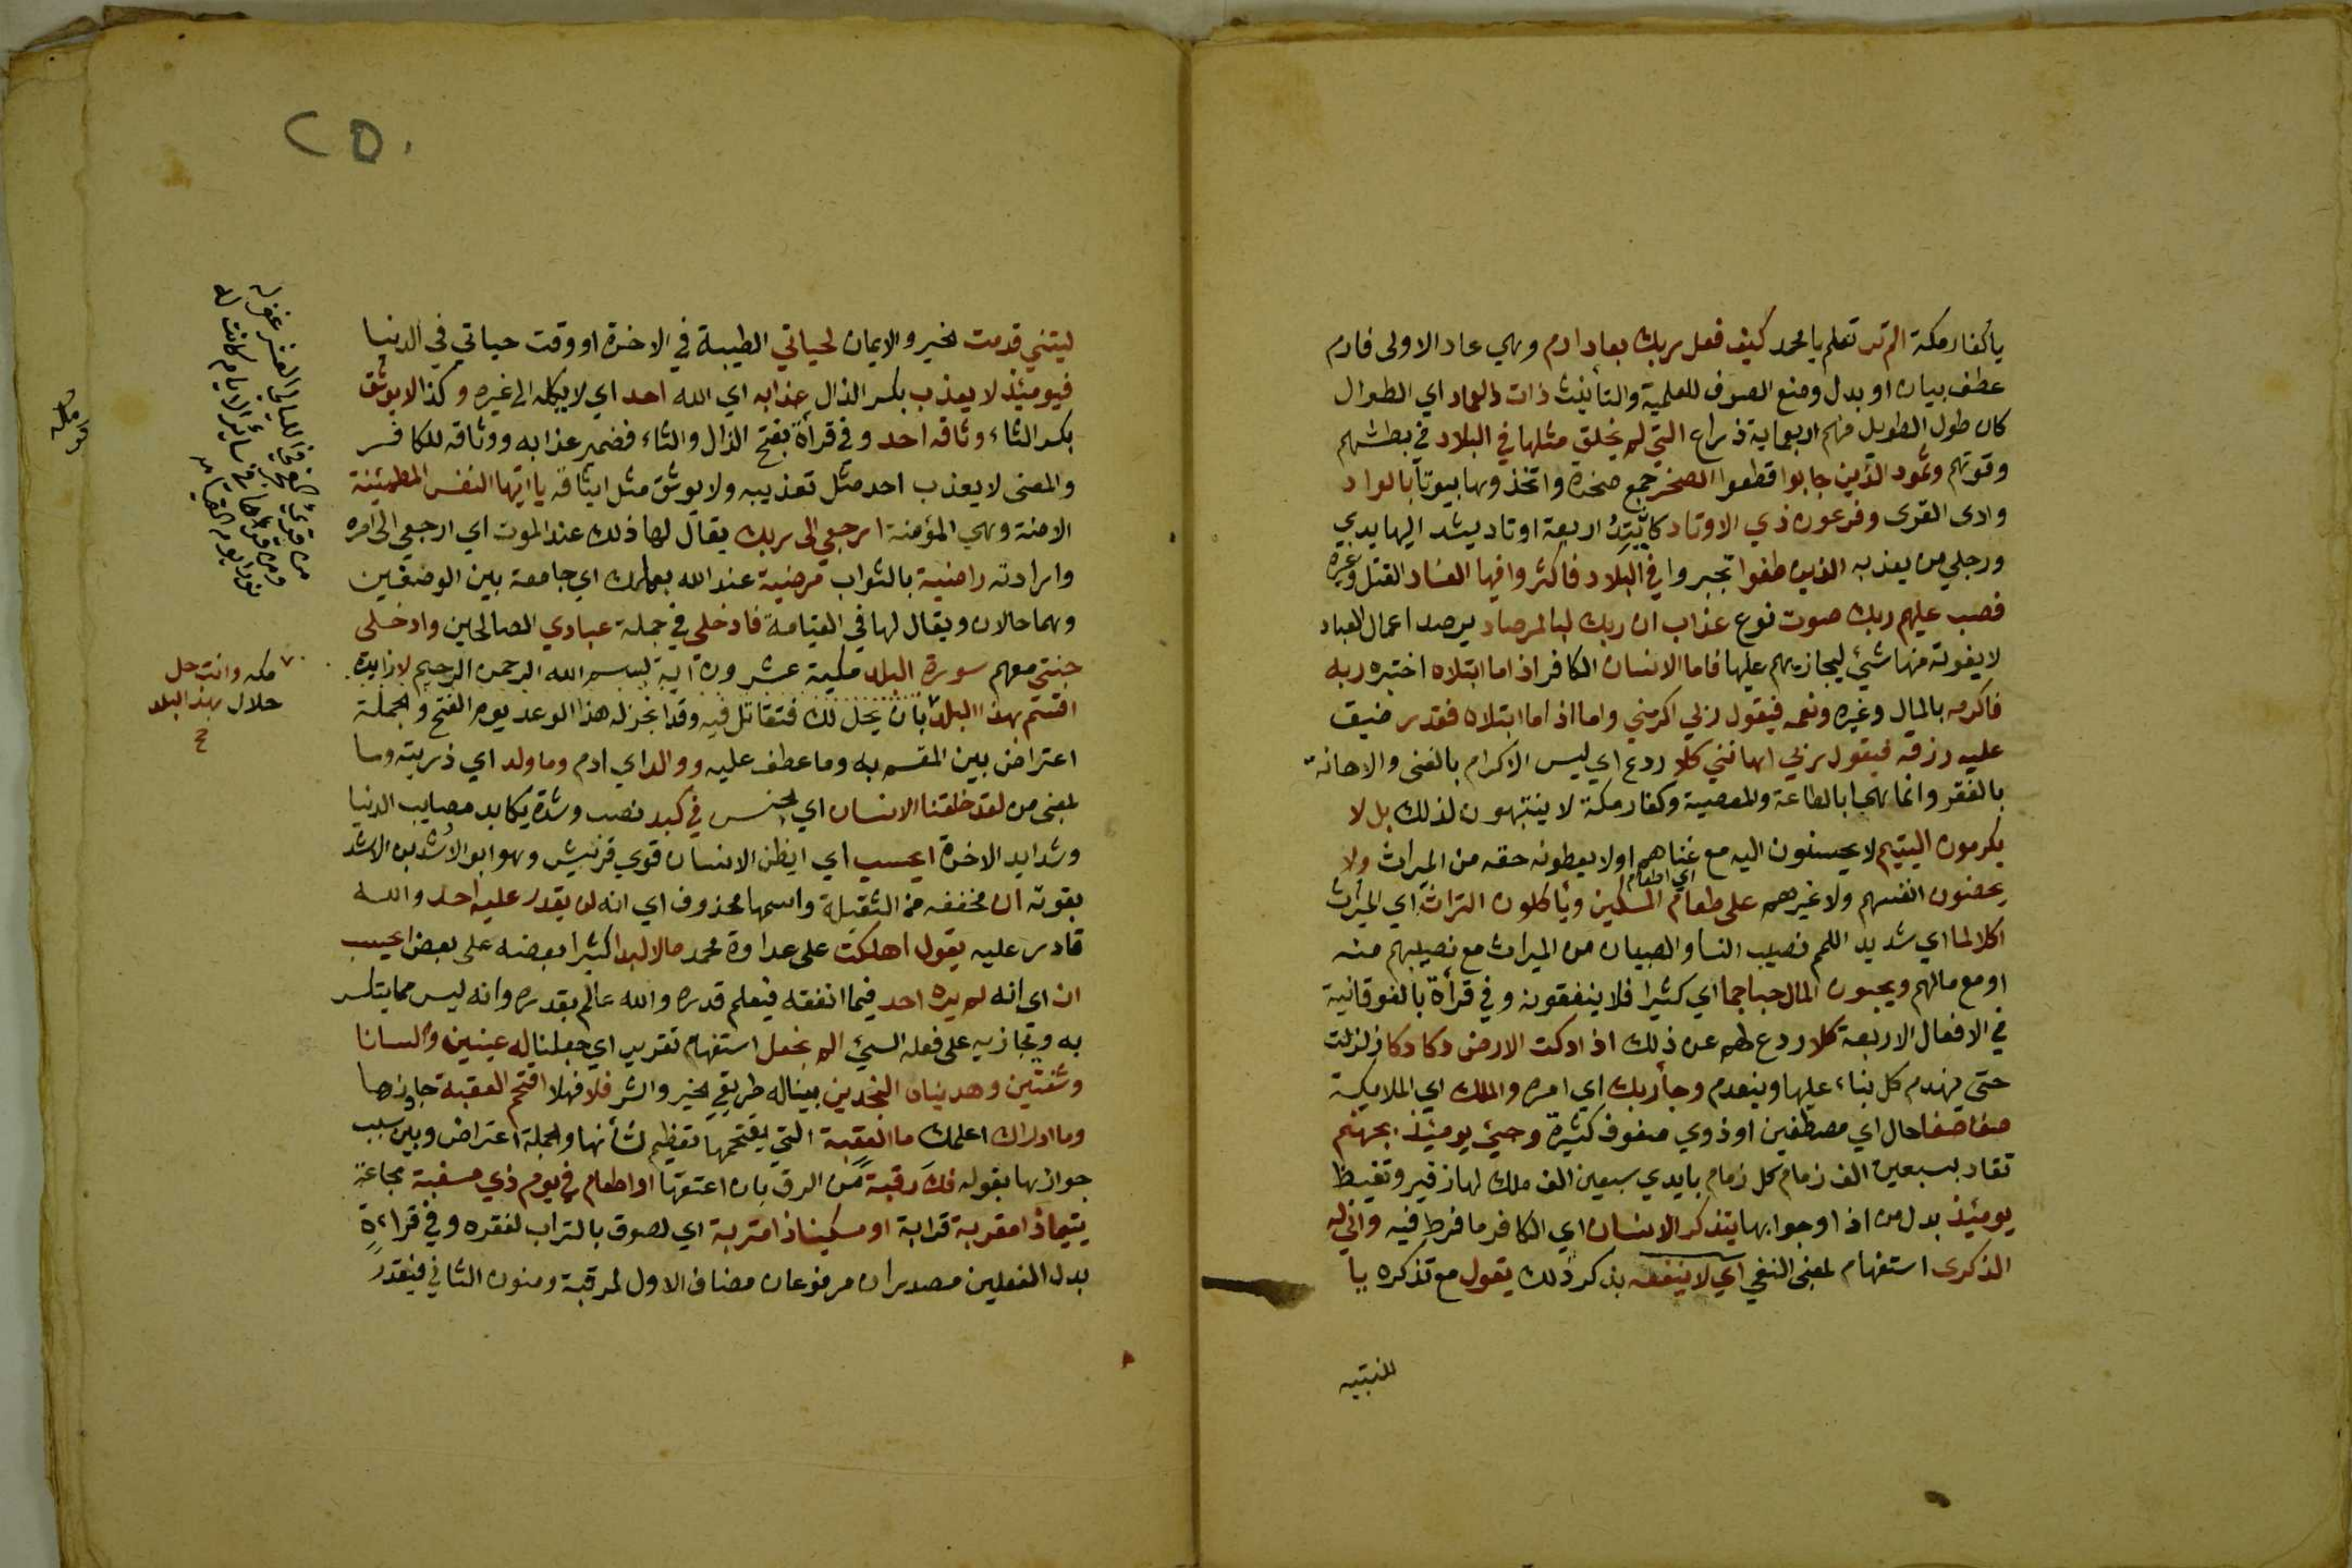 ياكفار مكة الم تر تعلم يا محمد كيف فعل ربك بعاد ارم وهي عاد الاولى فارم
عطف بيان او بدل ومنع الصرف للعلمية والتأنيث ذات العماد اي الطوال
كان طول الطويل منهم اربعماية ذراع التي لم يخلق مثلها في البلاد في بطشهم
وقوتهم وثمود الذين جابوا قطعوا الصخر جمع صخرة واتخذوها بيوتا بالواد
وادى القرى وفرعون ذي الاوتاد كان يَتِدُ اربعة اوتاد يشد اليها يدي
ورجلي من يعذبه الذين طغوا تجبروا في البلاد فاكثروا فيها الفساد القتل وغيره
فصب عليهم ربك صوت نوع عذاب ان ربك لبالمرصاد يرصد اعمال العباد
لا يفوته منها شيئ ليجازيهم عليها فاما الانسان الكافر اذا ما ابتلاه اختبره ربه
فاكرمه بالمال وغيره ونعمه فيقول ربي اكرمني واما اذا ما ابتلاه فقدر ضيق
عليه رزقه فيقول ربي اهانني كلا ردع اي ليس الاكرام بالغنى والاهانة
بالفقر وانما هما بالطاعة والمعصية وكفار مكة لا ينتبهون لذلك بل لا
يكرمون اليتيم لا يحسنون اليه مع غناهم او لا يعطونه حقه من الميراث ولا
يحضون انفسهم ولا غيرهم على طعام اي اطعام المسكين ويأكلون التراث اي الميراث
اكلا لما اي شديد اللم نصيب النسا والصبيان من الميراث مع نصيبهم منه
او مع مالهم ويحبون المال حبا جما اي كثيرا فلا ينفقونه وفي قرأة بالفوقانية
في الافعال الاربعة كلا ردع لهم عن ذلك اذا دكت الارض دكا دكا زلزلت
حتى ينهدم كل بناء عليها وينعدم وجأ ربك اي امره والملك اي الملايكة
صفا صفا حال اي مصطفين او ذوي صفوف كثيرة وجيئ يومئذ بجهنم
تقاد بسبعين الف زمام كل زمام بايدي سبعين الف ملك لها زفير وتغيظ
يومئذ بدل من اذا وجوابها يتذكر الانسان اي الكافر ما فرط فيه واني له
الذكرى استفهام لمعنى النفي اي لا ينفعه بذكر ذلك يقول مع تذكره يا
للتنبيه
٢٥٠
ليتني قدمت الخير والايمان لحياتي الطيبة في الاخرة او وقت حياتي في الدنيا
فيومئذ لا يعذب بكسر الذال عذابه اي الله احد اي لا يكله الى غيره وكذا لا يوثق
بكسر الثاء وثاقه احد وفي قرأة بفتح الذال والثاء فضمير عذابه ووثاقه للكافر
والمعنى لا يعذب احد مثل تعذيبه ولا يوثق مثل ايثاقه يا ايتها النفس المطمئنة
الامنة وهي المؤمنة ارجعي الى ربك يقال لها ذلك عند الموت اي ارجعي الى امره
وارادته راضية بالثواب مرضية عند الله بعملك اي جامعة بين الوصفين
وهما حالان ويقال لها في القيامة فادخلي في جملة عبادي الصالحين وادخلي
جنتي معهم سورة البلد مكية عشرون آية بسم الله الرحمن الرحيم لا زايدة
اقسم بهذا البلد بان يحل لك فتقاتل فيه وقد انجز له هذا الوعد يوم الفتح والجملة
اعتراض بين المقسم به وما عطف عليه ووالد اي ادم وما ولد اي ذريته وما
لمعنى من لقد خلقنا الانسان اي الجنس في كبد نصب وشدة يكابد مصايب الدنيا
وشدايد الاخرة ايحسب اي ايظن الانسان قوي قريش وهو ابو الاشد بن الاشد
بقوته ان مخففه من الثقيلة واسمها محذوف اي انه لن يقدر عليه احد والله
قادر عليه يقول اهلكت على عداوة محمد مالا لبدا كثيرا بعضه على بعض ايحسب
ان اي انه لم يره احد فيما انفقه فيعلم قدره والله عالم بقدره وانه ليس مما يتكثر
به ويجازيه على فعله السيئ الم نجعل استفهام تقرير اي جعلنا له عينين ولسانا
وشفتين وهديناه النجدين بينا له طريقي الخير والشر فلا فهلا اقتحم العقبة جاوزها
وما ادراك اعلمك ما العقبة التي يقتحمها تعظيم لشأنها والجملة اعتراض وبين سبب
جوازها بقوله فك رقبة من الرق بان اعتقها او اطعام في يوم ذي مسغبة مجاعة
يتيما ذا مقربة قرابة او مسكينا ذا متربة اي لصوق بالتراب لفقره وفي قراءة
بدل الفعلين مصدران مرفوعان مضاف الاول لرقبة ومنون الثاني فيقدر
من قرئ الفجر في الليالي العشر غفر له
ومن قراها في سائر الايام كانت له
نورا يوم القيامة
مكه وانت حل
حلال بهذا البلد